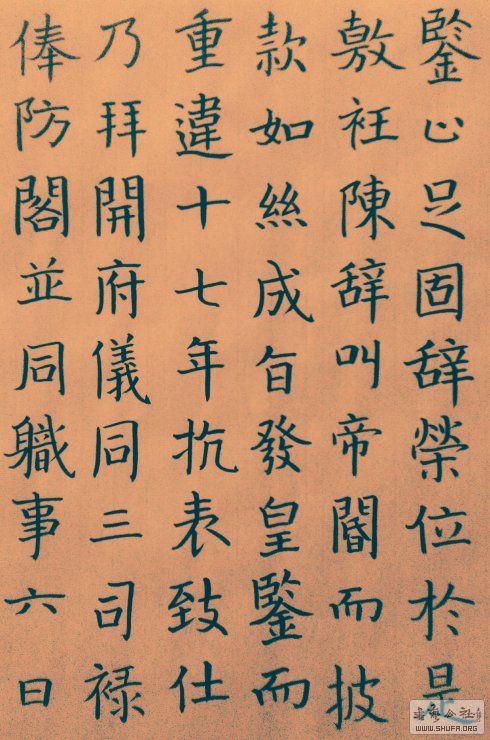 鑒止足固辞榮位於是
敷衽陳辞叫帝閽而披
款如絲成旨發皇鑒而
重違十七年抗表致仕
乃拜開府儀同三司禄
俸防閣並同職事六日
WWW.SHUFA.ORG